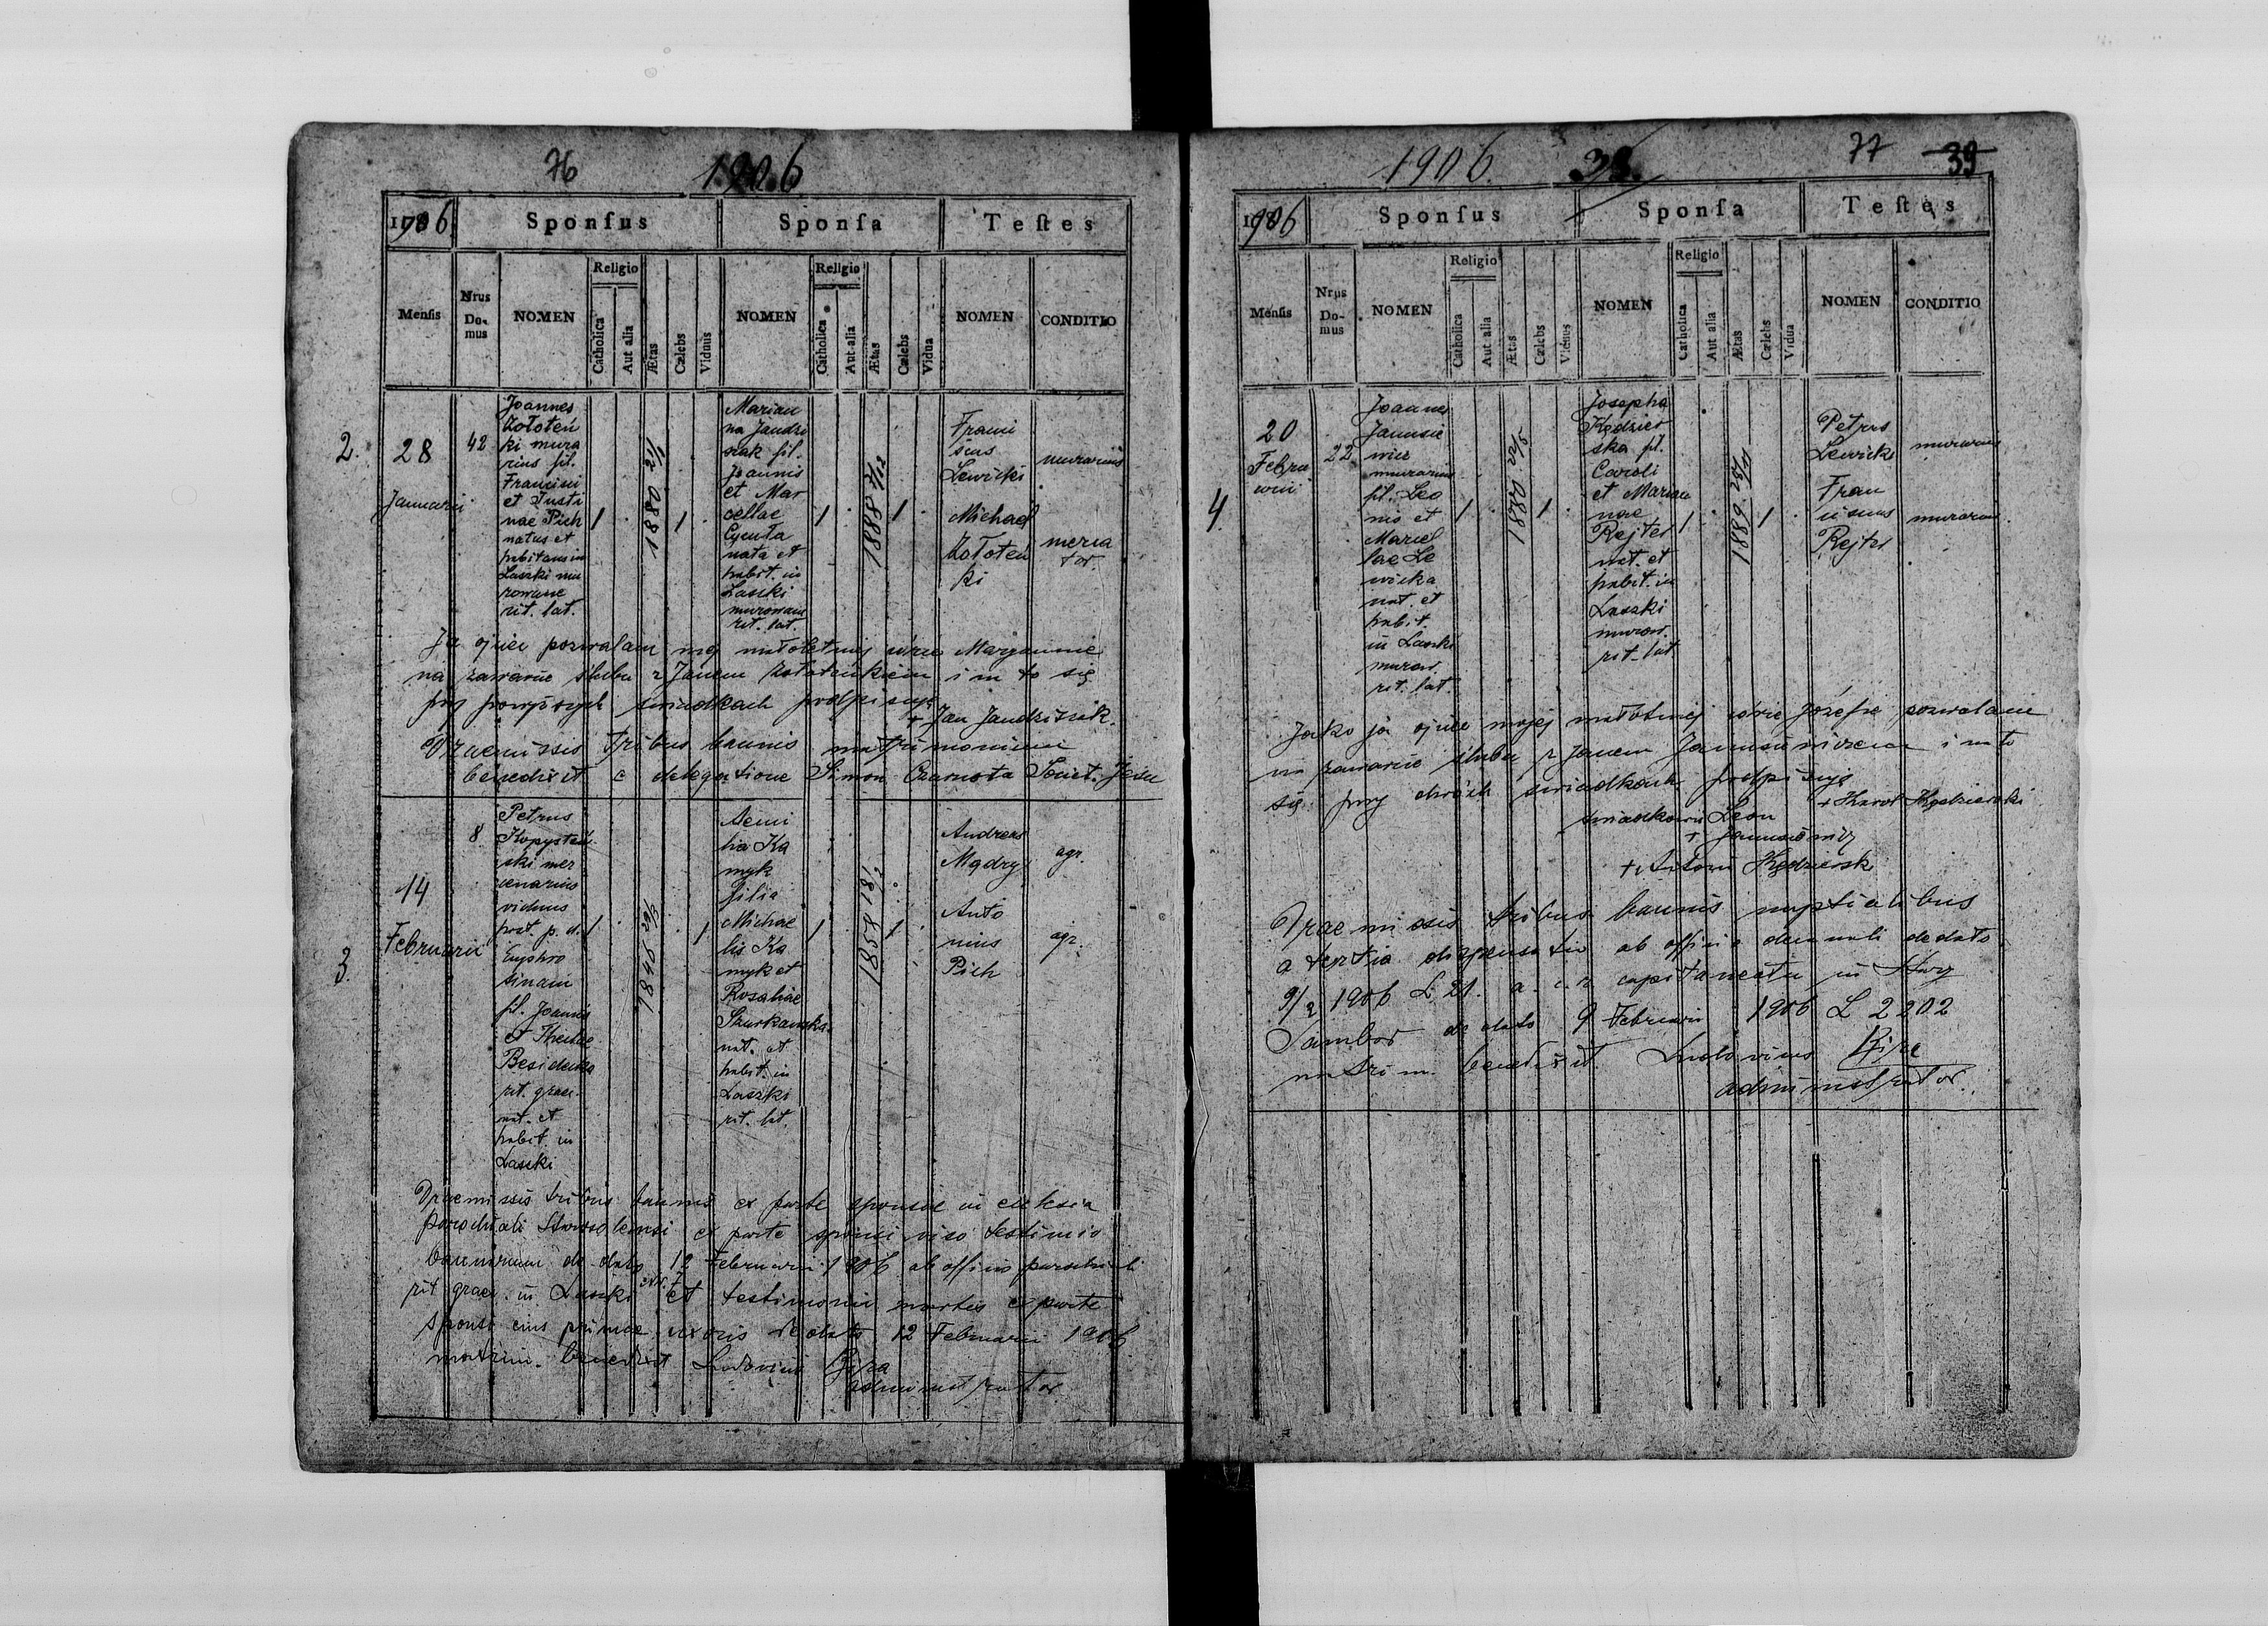 76
1906
1906
Sponſus
Sponſa
Teſtes
Menſis
Nrus Do- mus
NOMEN
Religio
Catholica
Aut alia
Ætas
Cælebs
Viduus
NOMEN
Religio
Catholica
Aut alia
Ætas
Cælebs
Vidua
NOMEN
CONDITIO
2.
28
Januarii
42
Joannes
Zołoteń
ki mura
rius fil.
Francisci
et Justi
nae Pich
natus et
habitans in
Laszki mu
rowane
rit. lat.
1
1880
1
Marian
na Jandzi
szak fil.
Joannis
et Mar
cellae
nata et
habit. in
Laszki
murowane
rit. lat.
1
1888 2/12
1
Franci
scus
Lewicki
murarius
Michael
Zołoteń
ki
merca
tor.
Ja ojciec pozwalam mej małoletniej córce Maryannie
na zawarcie ślubu z Janem Zołoteńkim i na to się
przy powyższych świadkach podpisuję
+ Jan Jandziszak.
Praemissis tribus bannis matrimonium
benedixit e delegatione Simon Czarnota Societ. Jesu
3.
14
Februarii
8.
Petrus
Kopysteń
ski mer
cenarius
viduus
post p. d.
Euphro
sinam
fil. Joannis
et Theclae
rit. graec.
nat. et
habit. in
Laszki
1
1
Aemi
lia Ka
myk
filia
Michae
lis Ka
myk et
Rosaliae
nat. et
habit. in
Laszki
rit. lat.
1
1
Andreas
Mądry
agr.
Anto
nius
Pich
agr.
Praemissis tribus bannis ex parte sponsae in ecclesia
parochiali ex parte sponsi viso testimonio
bannorum de dato 12 Februarii 1906 ab officio parochiali
rit graec. in Laszki et testimonii mortis ex parte
sponsi eius primae uxoris de dato 12 Februarii 1906
matrim. benedixit Ludovicus
administrator
1906.
38.
77
39
1906
Sponſus
Sponſa
Teſtes
Menſis
Nrus Do- mus
NOMEN
Religio
Catholica
Aut alia
Ætas
Cælebs
Viduus
NOMEN
Religio
Catholica
Aut alia
Ætas
Cælebs
Vidua
NOMEN
CONDITIO
4.
20
Febru
arii
22
Joannes
Janusie
wicz
murarius
fil. Leo
nis et
Marcel
lae Le
wicka
nat. et
habit.
in Laszki
murow.
rit. lat.
1
1880 22/5
1
Josepha
Kędzier
ska fil.
Caroli
et Marian
nae
Rejter
nat. et
habit. in
Laszki
murow.
rit. lat
1
1889
1
Petrus
Lewicki
murarius
Fran
ciscus
Rejter
murarius
Jako ja ojciec mojej małoletniej córce Józefie pozwalam
na zawarcie ślubu z Janem Janusiewiczem i na to
się przy dwóch świadkach podpisuję
+ Karol Kędzierski
świadkowie Leon
+ Janusiewicz
+ Antoni Kędzierski
Praemissis tribus bannis nuptialibus
a tertio dispensatio ab officio decanali de dato
9/2 1906 L 21. a c. r. capitaneatu in Stary
Sambor de dato 9 Februarii 1906 L 2202
matrim. benedixit Ludovicus
administrator.